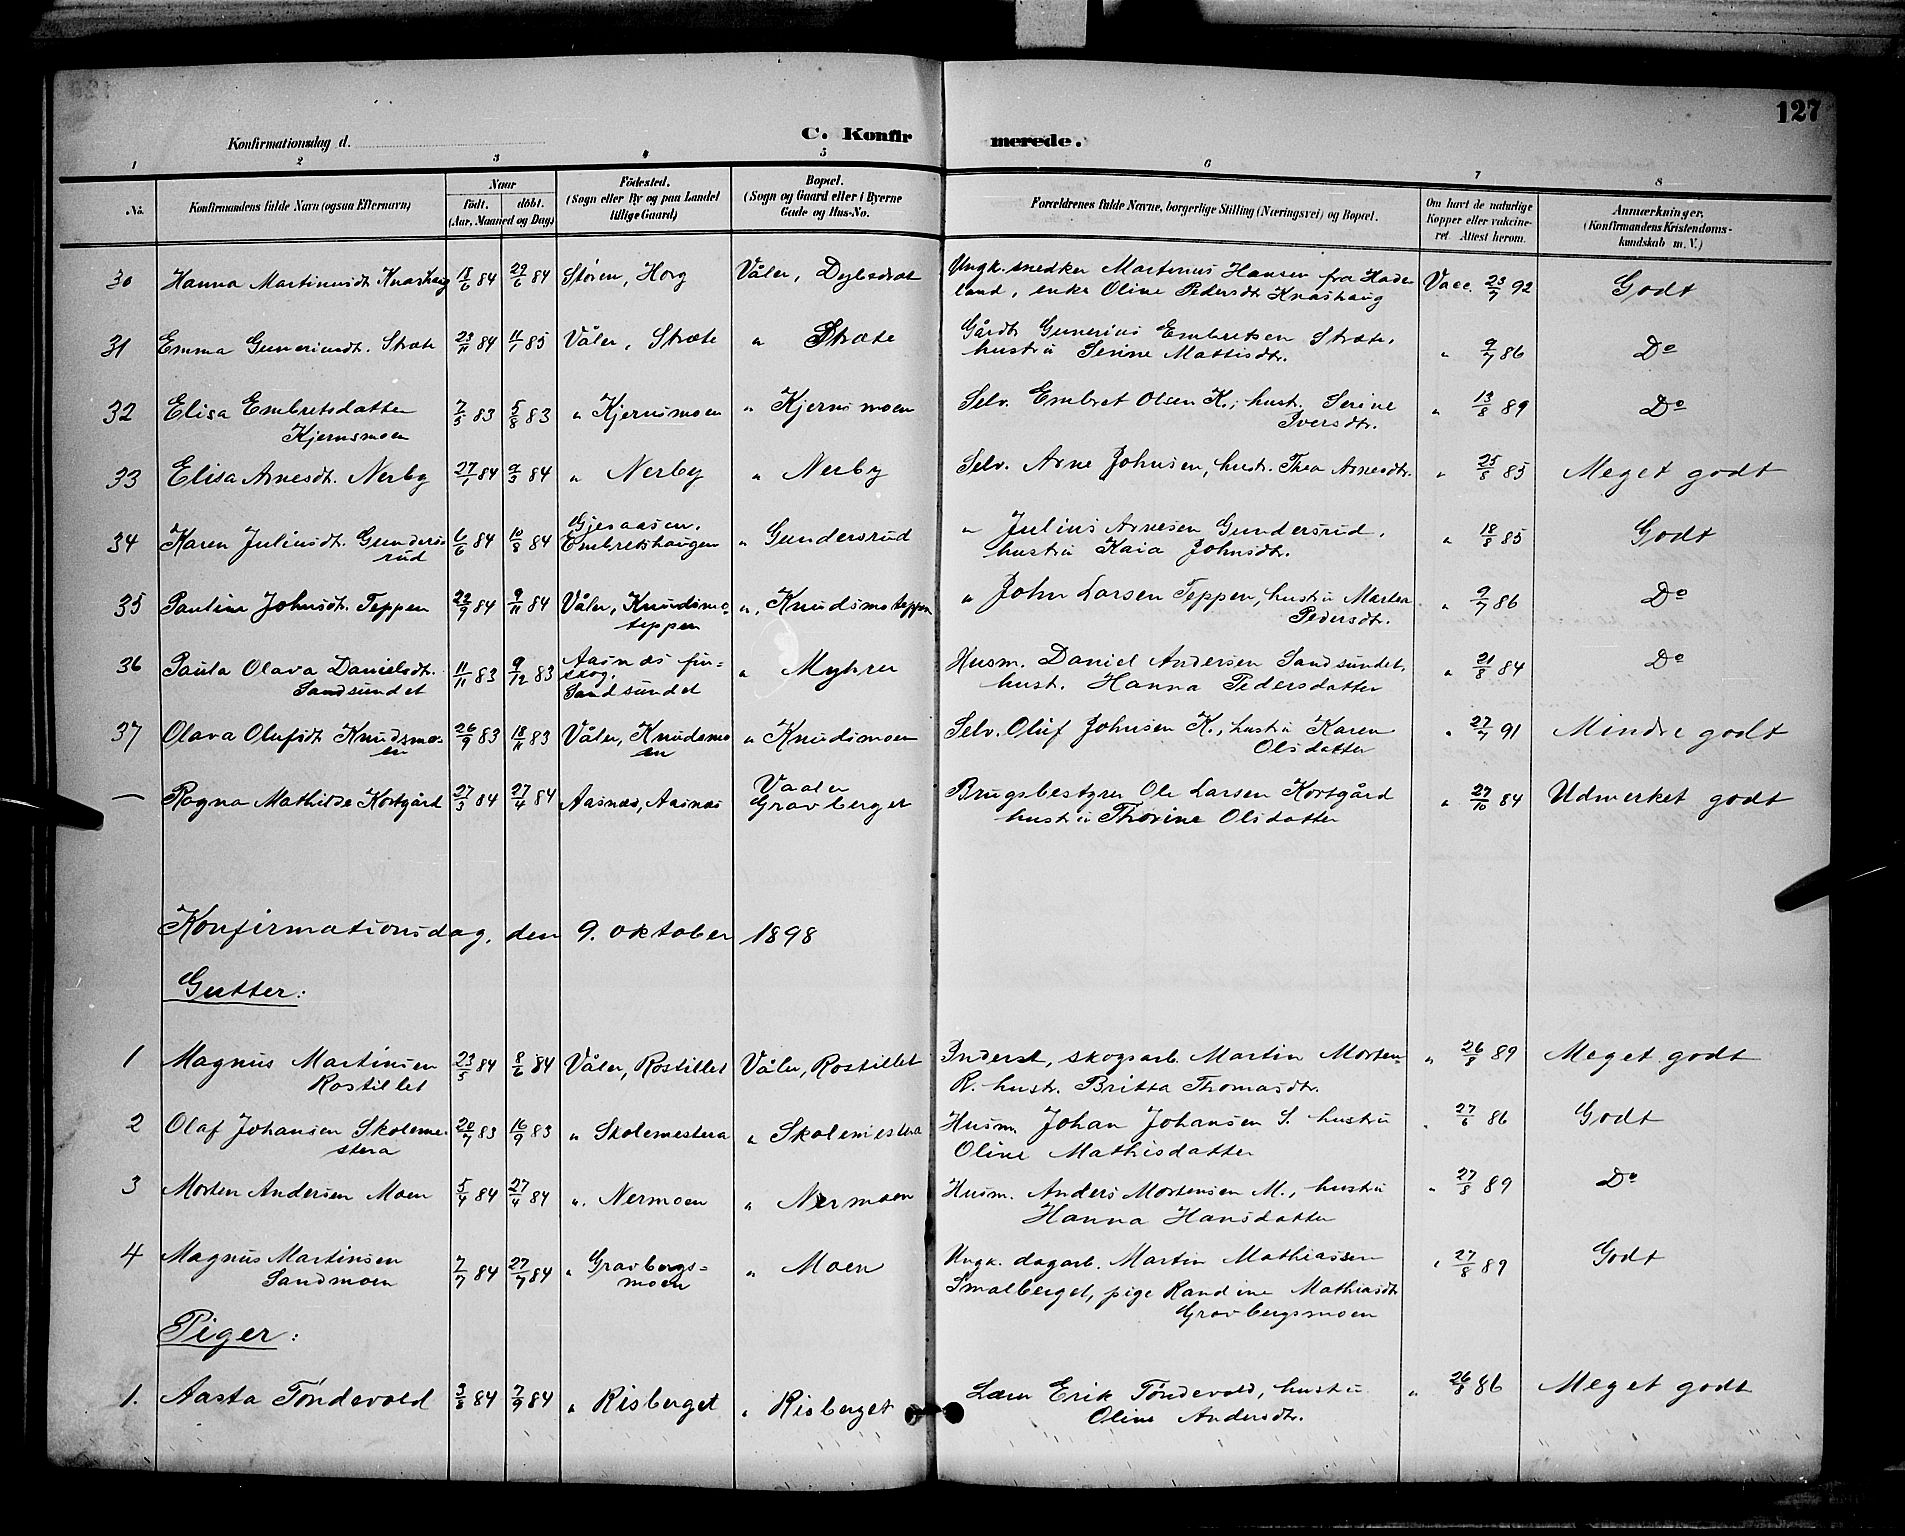 127
Konfirmationsdag d.
C. Konfirmerede.
1 2 3 4 5 6 7 8
No. Konfirmandens fulde Navn (ogsaa Efternavn) Naar født. døbt. (Aar, Maaned og Dag) Fødested. (Sogn eller By og paa Landet tillige Gaard) Bopæl. (Sogn og Gaard eller i Byerne Gade og Hus-No. Forældrenes fulde Navne, borgerlige Stilling (Næringsvei) og Bopæl. Om havt de naturlige Kopper eller vakcineret. Attest herom. Anmærkninger. (Konfirmandens Kristendomskundskab m. V.)
30 Hanna Martinusdt. Knashaug 18/6 84 29/6 84 Støren, Horg Våler, Ungk. snedker Martinus Hansen fra Hadeland, enke Oline Pedersdt. Knashaug Vacc. 23/7 92 Godt
31 Emma Guneriusdt. Stræte 23/11 84 11/1 85 Våler, Stræte " Stræte Gårdbr. Gunerius Embretsen Stræte, hustru Serine Mattisdtr. " 9/7 86 Do
32 Elisa Embretsdatter Kjernsmoen 7/5 83 5/8 83 " Kjernsmoen " Kjernsmoen Selv. Embret Olsen K., hust. Serine Iversdtr. " 13/8 89 Do
33 Elisa Arnesdt. Nerby 27/1 84 9/3 84 " Nerby " Nerby Selv. Arne Johnsen, hustr. Thea Arnesdtr. " 25/8 85 Meget godt
34 Karen Juliusdt. Gundersrud 6/6 84 10/8 84 Gjesaasen, Embretshaugen " Gundersrud " Julius Arnesen Gundersrud, hustru Kaia Johnsdtr. " 18/8 85 Godt
35 Pauline Johnsdt. Teppen 22/9 84 9/11 84 Våler, Knudsmoteppen " Knudsmoteppen " John Larsen Teppen, hustru Martea Pedersdtr. " 9/7 86 Do
36 Paula Olava Danielsdtr. Sandsundet 11/11 83 9/12 83 Aasnæs finskog, Sandsundet " Myhrer Husm. Daniel Andersen Sandsundet, hust. Hanna Pedersdatter " 21/8 84 Do
37 Olava Olufsdt. Knudsmoen 26/9 83 18/11 83 Våler, Knudsmoen " Knudsmoen Selv. Oluf Johnsen K., hustru Karen Olsdatter " 27/7 91 Mindre godt
— Ragna Mathilde Kortgård 27/3 84 27/4 84 Aasnæs, Aasnæs Vaaler Gravberget Brugsbestyrer Ole Larsen Kortgård hustru Thorine Olsdatter " 27/10 84 Udmerket godt
Konfirmationsdag, den 9. oktober 1898
Gutter:
1 Magnus Martinsen Rostillet 23/5 84 8/6 84 Våler, Rostillet Våler, Rostillet Inderst, skogsarb. Martin Morten- R. hustr. Britta Thomasdtr. " 26/8 89 Meget godt
2 Olaf Johansen Skolemestera 20/7 83 16/9 83 " Skolemestera " Skolemestera Husm. Johan Johansen S. hustru Oline Mathisdatter " 27/6 86 Godt
3 Morten Andersen Moen 5/4 84 27/4 84 " Nermoen " Nermoen Husm. Anders Mortensen M., hustru Hanna Hansdatter " 27/8 89 Do
4 Magnus Martinsen Sandmoen 7/7 84 27/7 84 " Gravbergsmoen " Moen Ungk. dagarb. Martin Mathiassen Smalberget, pige Randine Mathiasdt. Gravbergsmoen " 27/8 89 Godt
Piger:
1. Aasta Tøndevold 84 7/9 84 " Risberget " Risberget Lærer Erik Tøndevold, hustru Oline Andersdtr. " 86 Meget godt